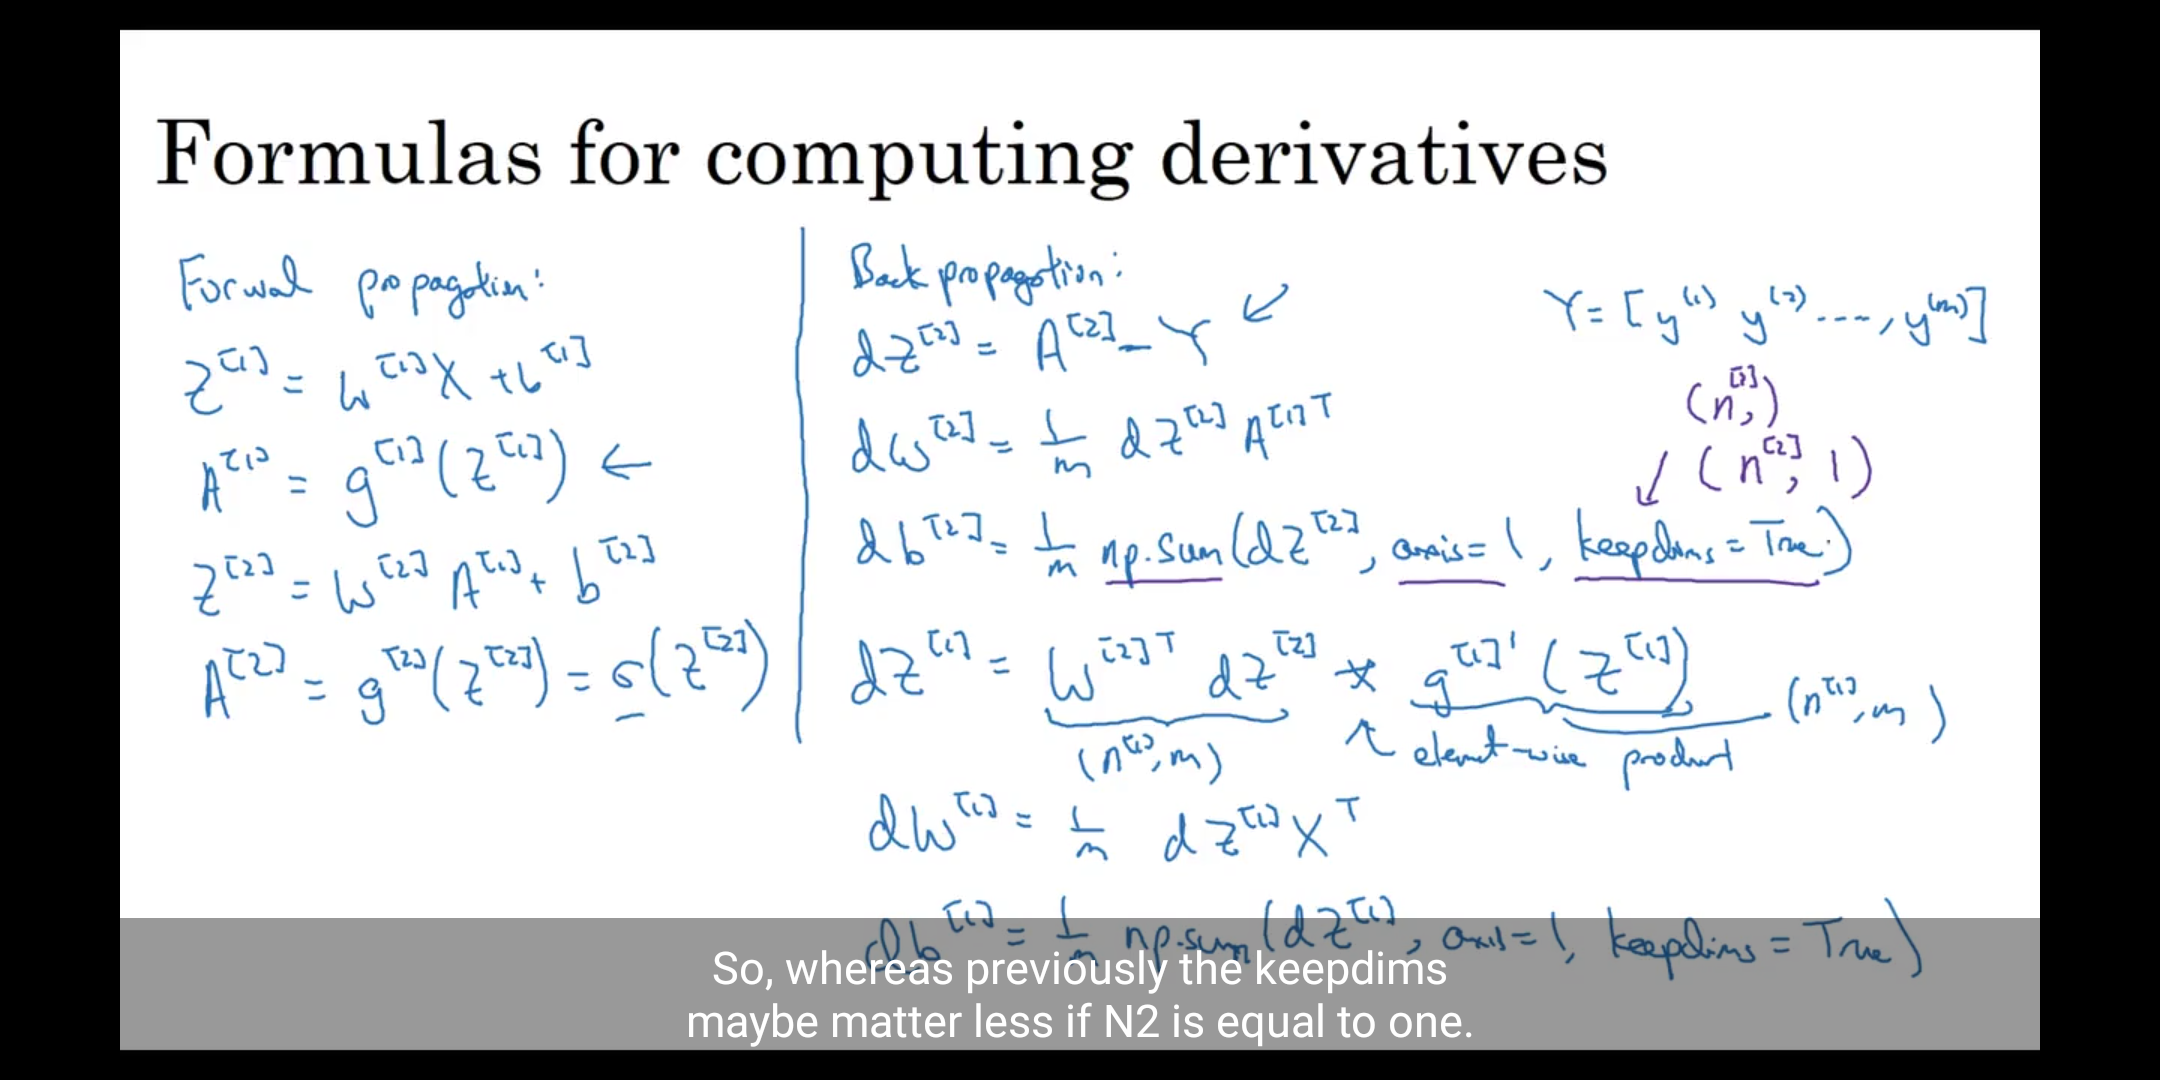 Formulas for computing derivatives
Forwal propagation:
Z^[1] = W^[1]X + b^[1]
A^[1] = g^[1](Z^[1]) ←
Z^[2] = W^[2] A^[1] + b^[2]
A^[2] = g^[2](Z^[2]) = σ(Z^[2])
Back propagation:
dZ^[2] = A^[2] - Y ↙
dW^[2] = 1/m dZ^[2] A^[1]T
db^[2] = 1/m np.sum(dZ^[2], axis=1, keepdims=True)
dZ^[1] = W^[2]T dZ^[2] * g^[1]' (Z^[1])
(n^[1], m) ↖ element-wise product (n^[1], m)
dW^[1] = 1/m dZ^[1] X^T
db^[1] = 1/m np.sum(dZ^[1], axis=1, keepdims=True)
Y = [y^(1) y^(2) ...., y^(m)]
(n^[2],)
↙ (n^[2], 1)
So, whereas previously the keepdims
maybe matter less if N2 is equal to one.